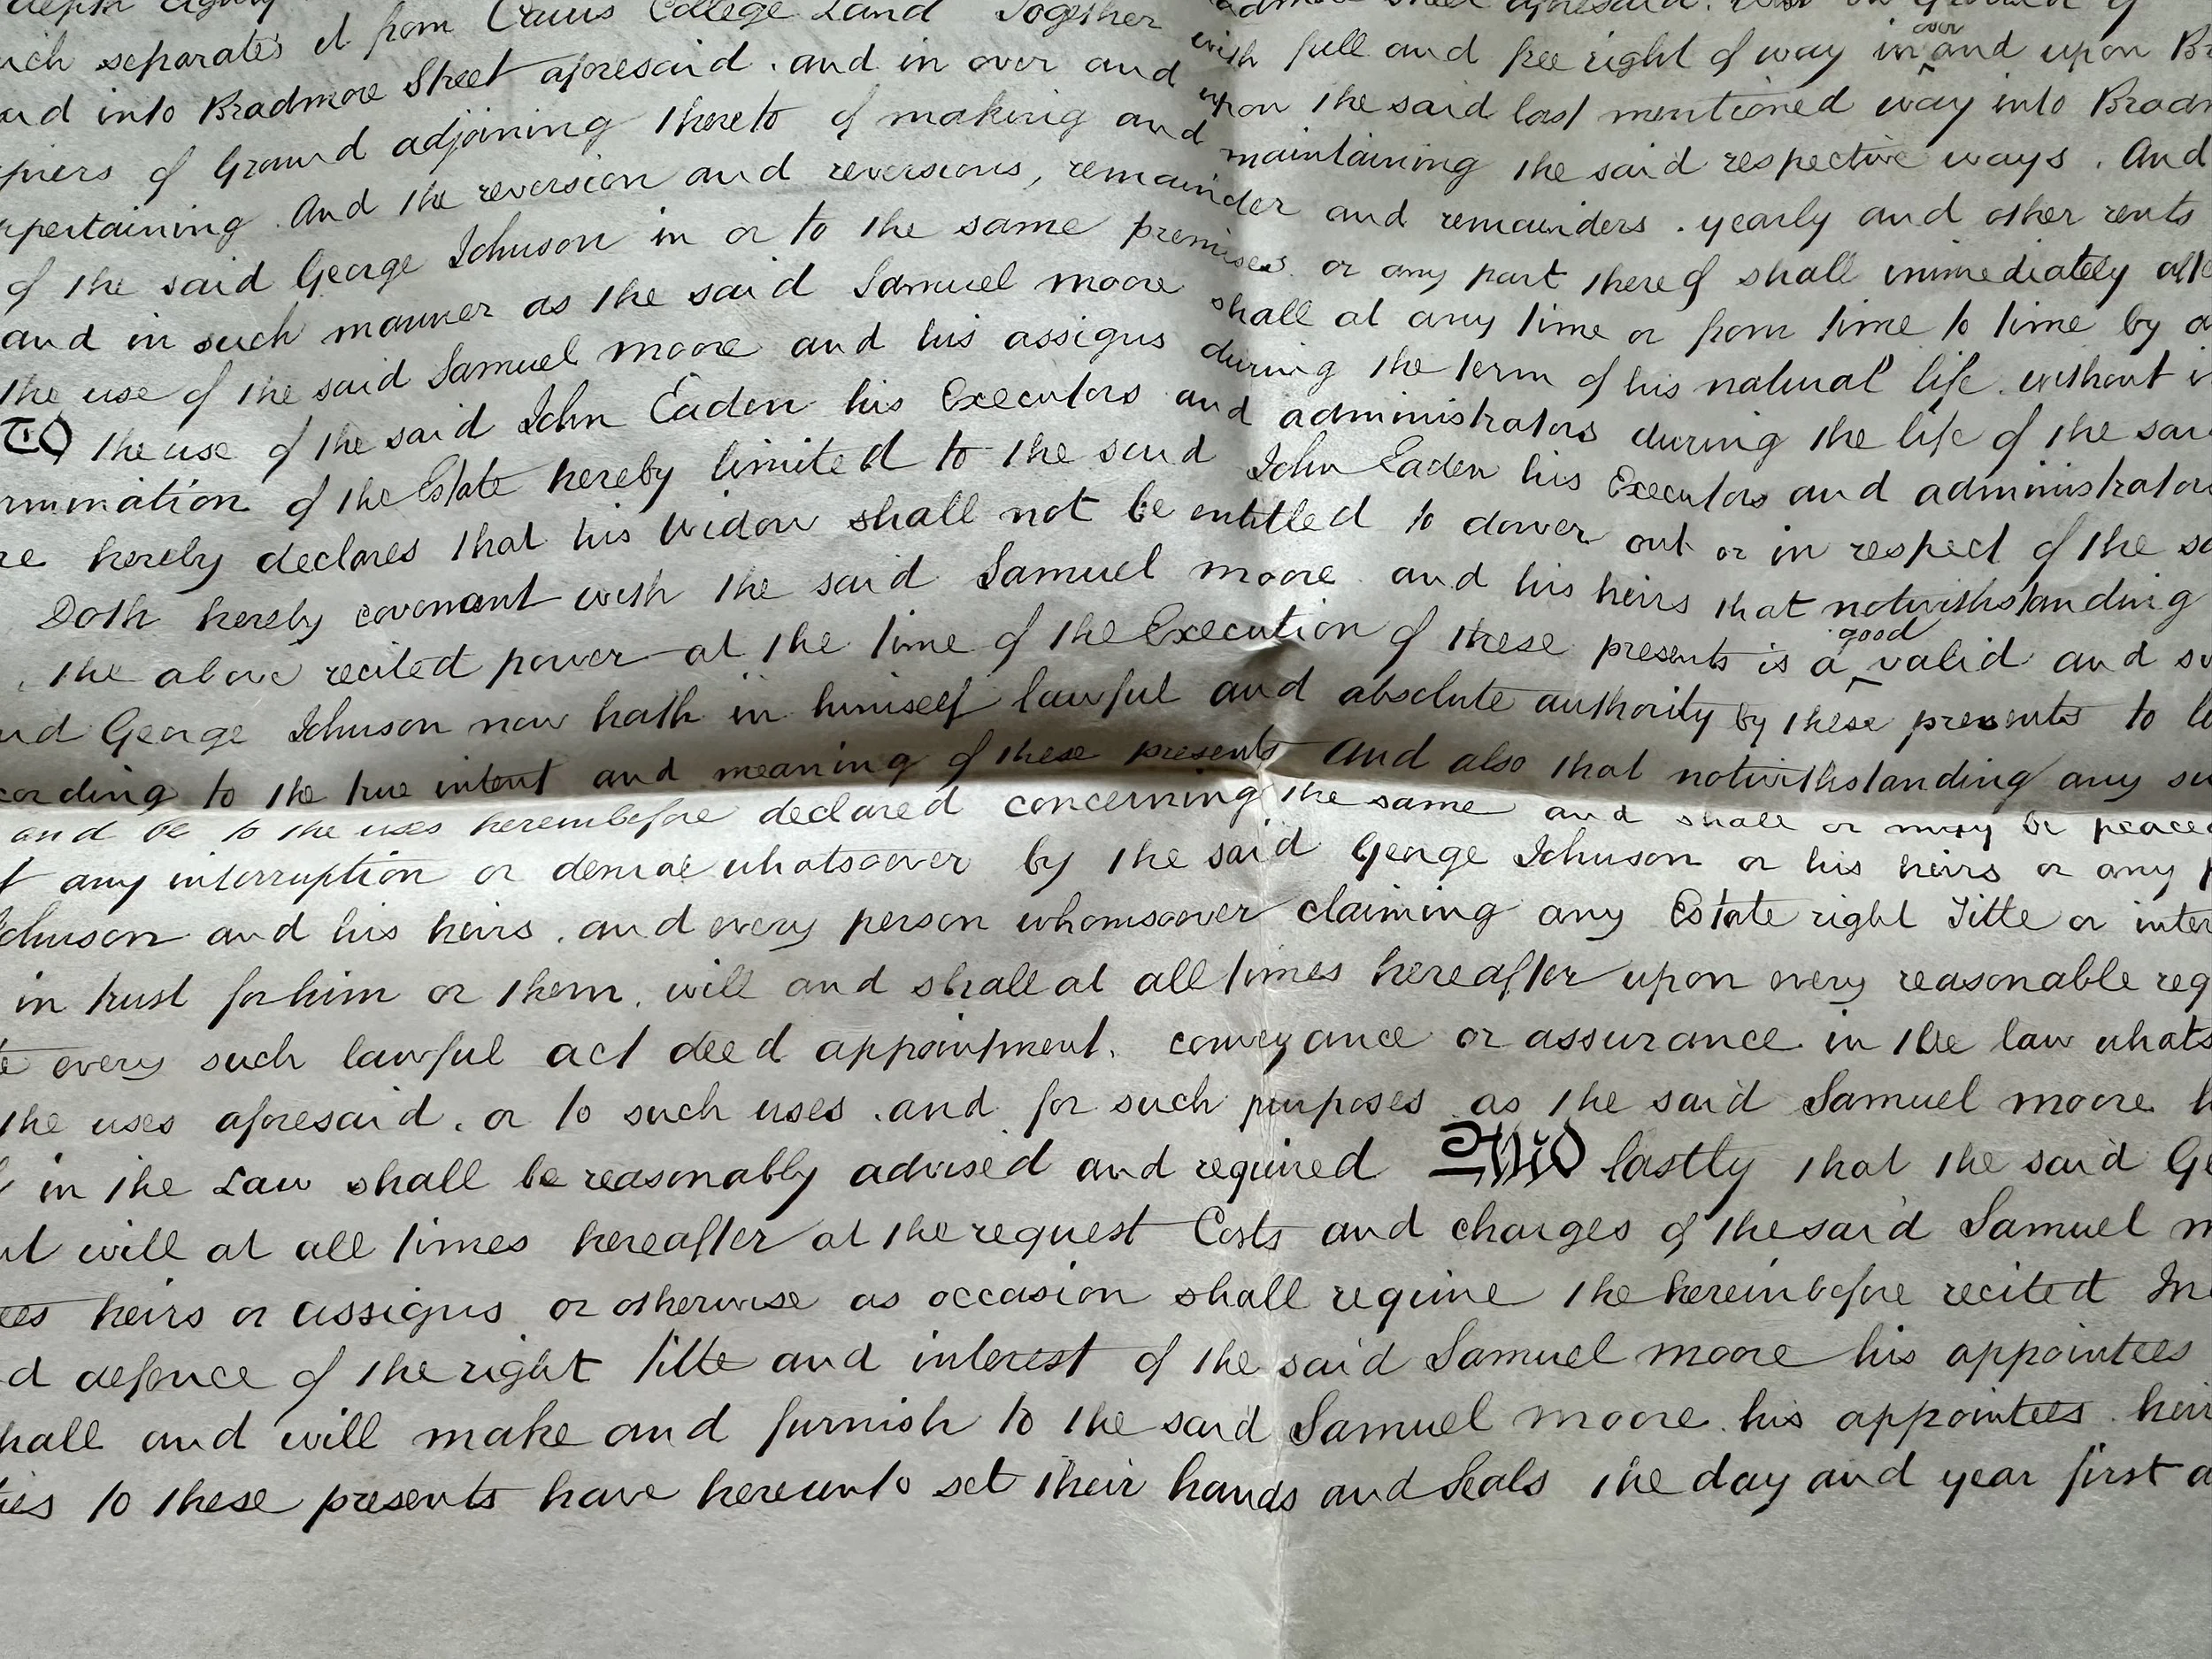 depth
separates it from Caius College Land Together
with full and free right of way in over and upon
and into Bradmore Street aforesaid . and in over and upon the said last mentioned way into
of Ground adjoining thereto of making and maintaining the said respective ways . And
And the reversion and reversions, remainder and remainders . yearly and other rents
of the said George Johnson in or to the same premises or any part thereof shall immediately
and in such manner as the said Samuel moore shall at any time or from time to time by
the use of the said Samuel moore and his assigns during the term of his natural life . without
TO the use of the said John Eaden his Executors and administrators during the life of the
of the Estate hereby limited to the said John Eaden his Executors and administrators
hereby declares that his widow shall not be entitled to dower out or in respect of the
Doth hereby covenant with the said Samuel moore . and his heirs that notwithstanding
the above recited power at the time of the Execution of these presents is a good valid and
George Johnson now hath in himself lawful and absolute authority by these presents to
to the true intent and meaning of these presents And also that notwithstanding any
and be to the uses hereinbefore declared concerning the same and shall or may be
any interruption or denial whatsoever by the said George Johnson or his heirs or any
and his heirs . and every person whomsoever claiming any Estate right Title or
in trust for him or them . will and shall at all times hereafter upon every reasonable
every such lawful act deed appointment . conveyance or assurance in the law
the uses aforesaid . or to such uses . and for such purposes as the said Samuel moore
in the Law shall be reasonably advised and required AND lastly that the said
will at all times hereafter at the request Costs and charges of the said Samuel
heirs or assigns or otherwise as occasion shall require the hereinbefore recited
defence of the right title and interest of the said Samuel moore his appointees
and will make and furnish to the said Samuel moore . his appointees .
to these presents have hereunto set their hands and Seals the day and year first